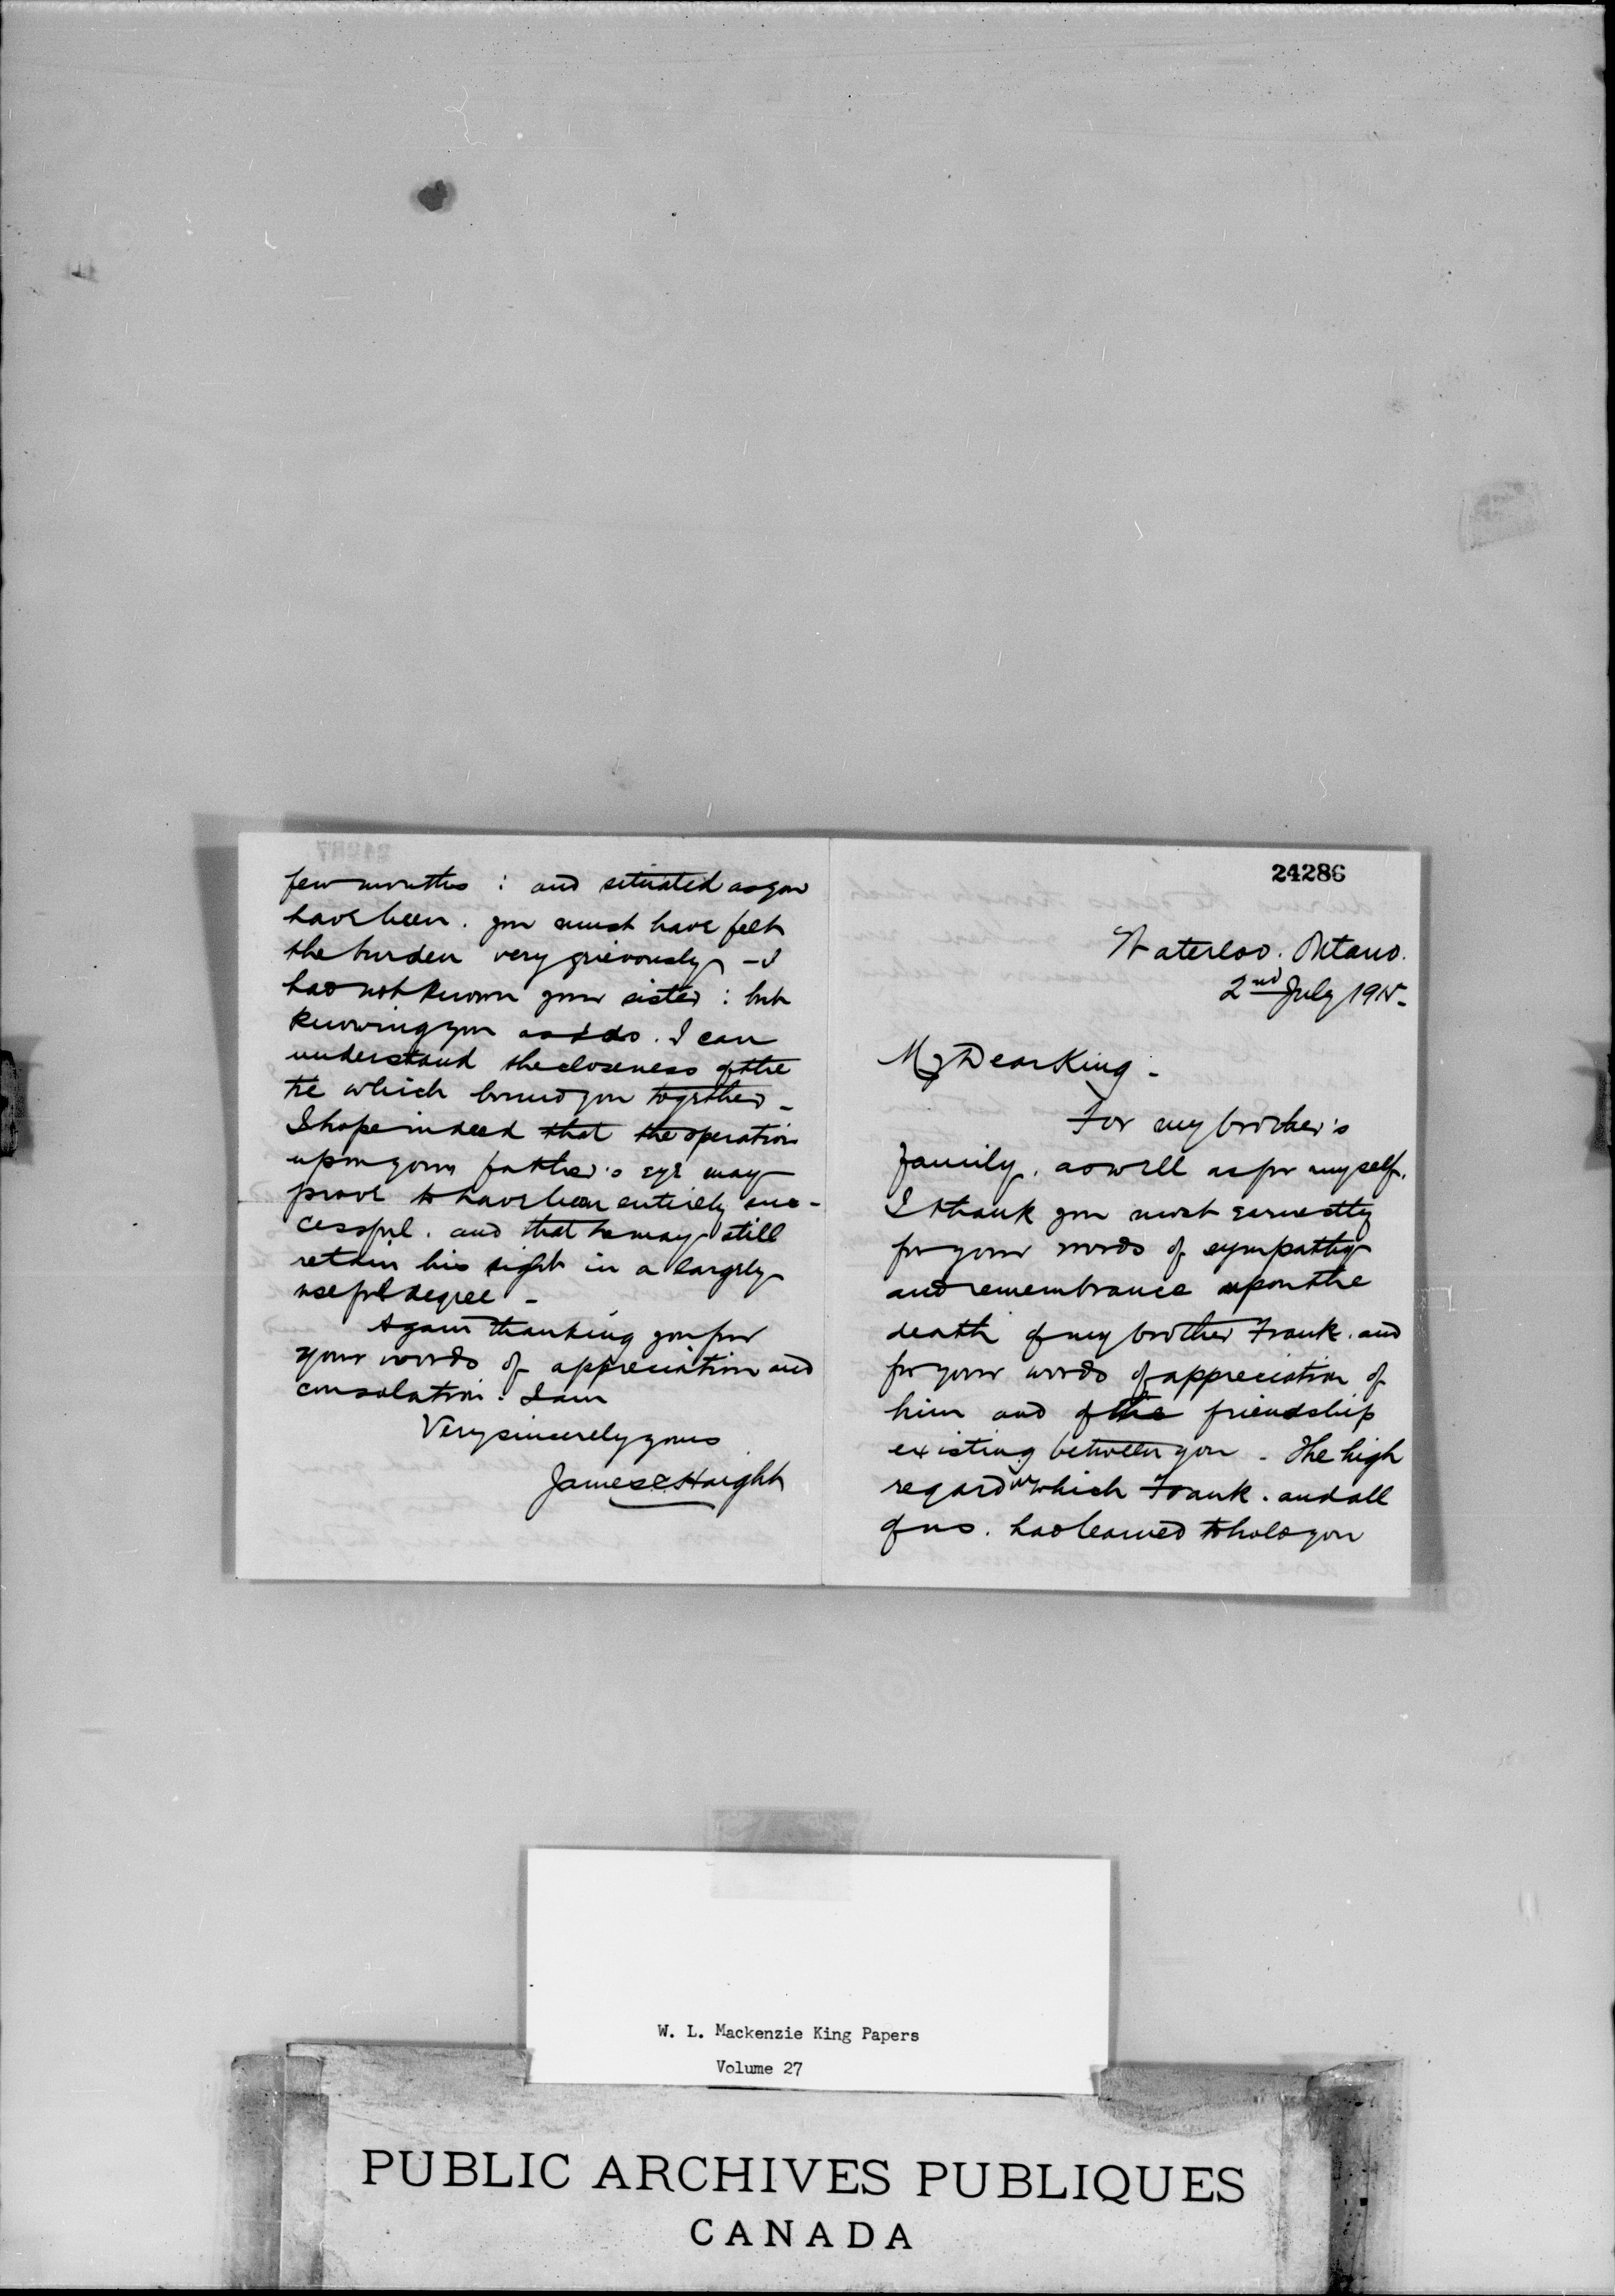 24286
Waterloo. Ontario.
2nd July 1915-
My Dear King -
For my brother's
family, as well as for myself,
I thank you most earnestly
for your words of sympathy
and remembrance upon the
death of my brother Frank. and
for your words of appreciation of
him and of the friendship
existing between you - The high
regard in which Frank. and all
of us. had learned to hold you
few months : and situated as you
have been. you must have felt
the burden very grievously - I
had not known your sister : but
knowing you as I do. I can
understand the closeness of the
tie which bound you together -
I hope indeed that the operation
upon your father's eye may
prove to have been entirely suc-
cessful. and that he may still
retain his sight in a largely
useful degree -
Again thanking you for
your words of appreciation and
consolation. I am
Very sincerely yours
James C Haight
W. L. Mackenzie King Papers
Volume 27
PUBLIC ARCHIVES PUBLIQUES
CANADA